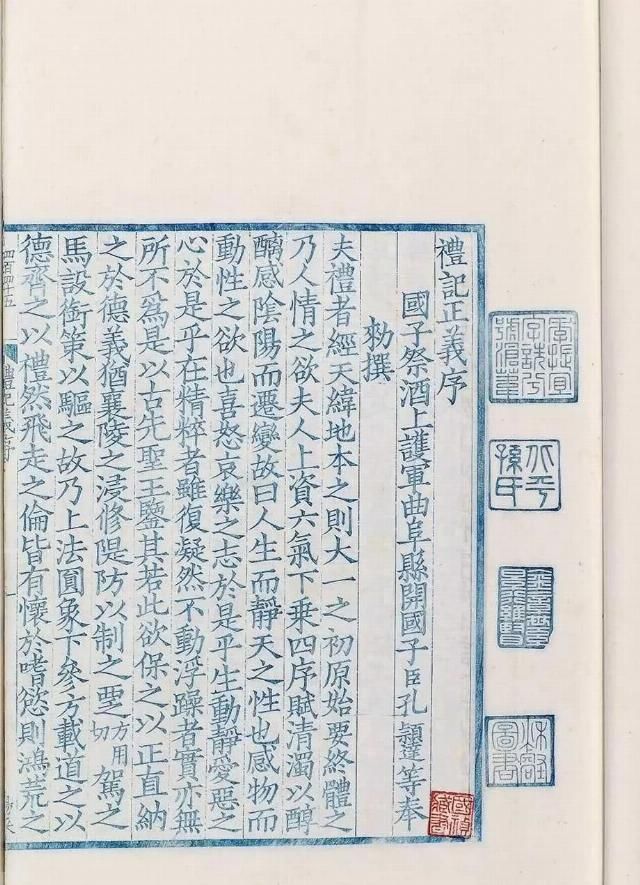 禮記正義序
國子祭酒上護軍曲阜縣開國子臣孔穎達等奉
勑撰
夫禮者經天緯地本之則大一之初原始要終體之
乃人情之欲夫人上資六氣下乗四序賦清濁以醇
醨感陰陽而遷變故曰人生而靜天之性也感物而
動性之欲也喜怒哀樂之志於是乎生動靜愛惡之
心於是乎在精粹者雖復凝然不動浮躁者實亦無
所不為是以古先聖王鑒其若此欲保之以正直納
之於德義猶襄陵之浸修隄防以制之覂方用切駕之
馬設銜策以驅之故乃上法圓象下參方載道之以
德齊之以禮然飛走之倫皆有懷於嗜慾則鴻荒之
四百四十五
孫氏
圖書